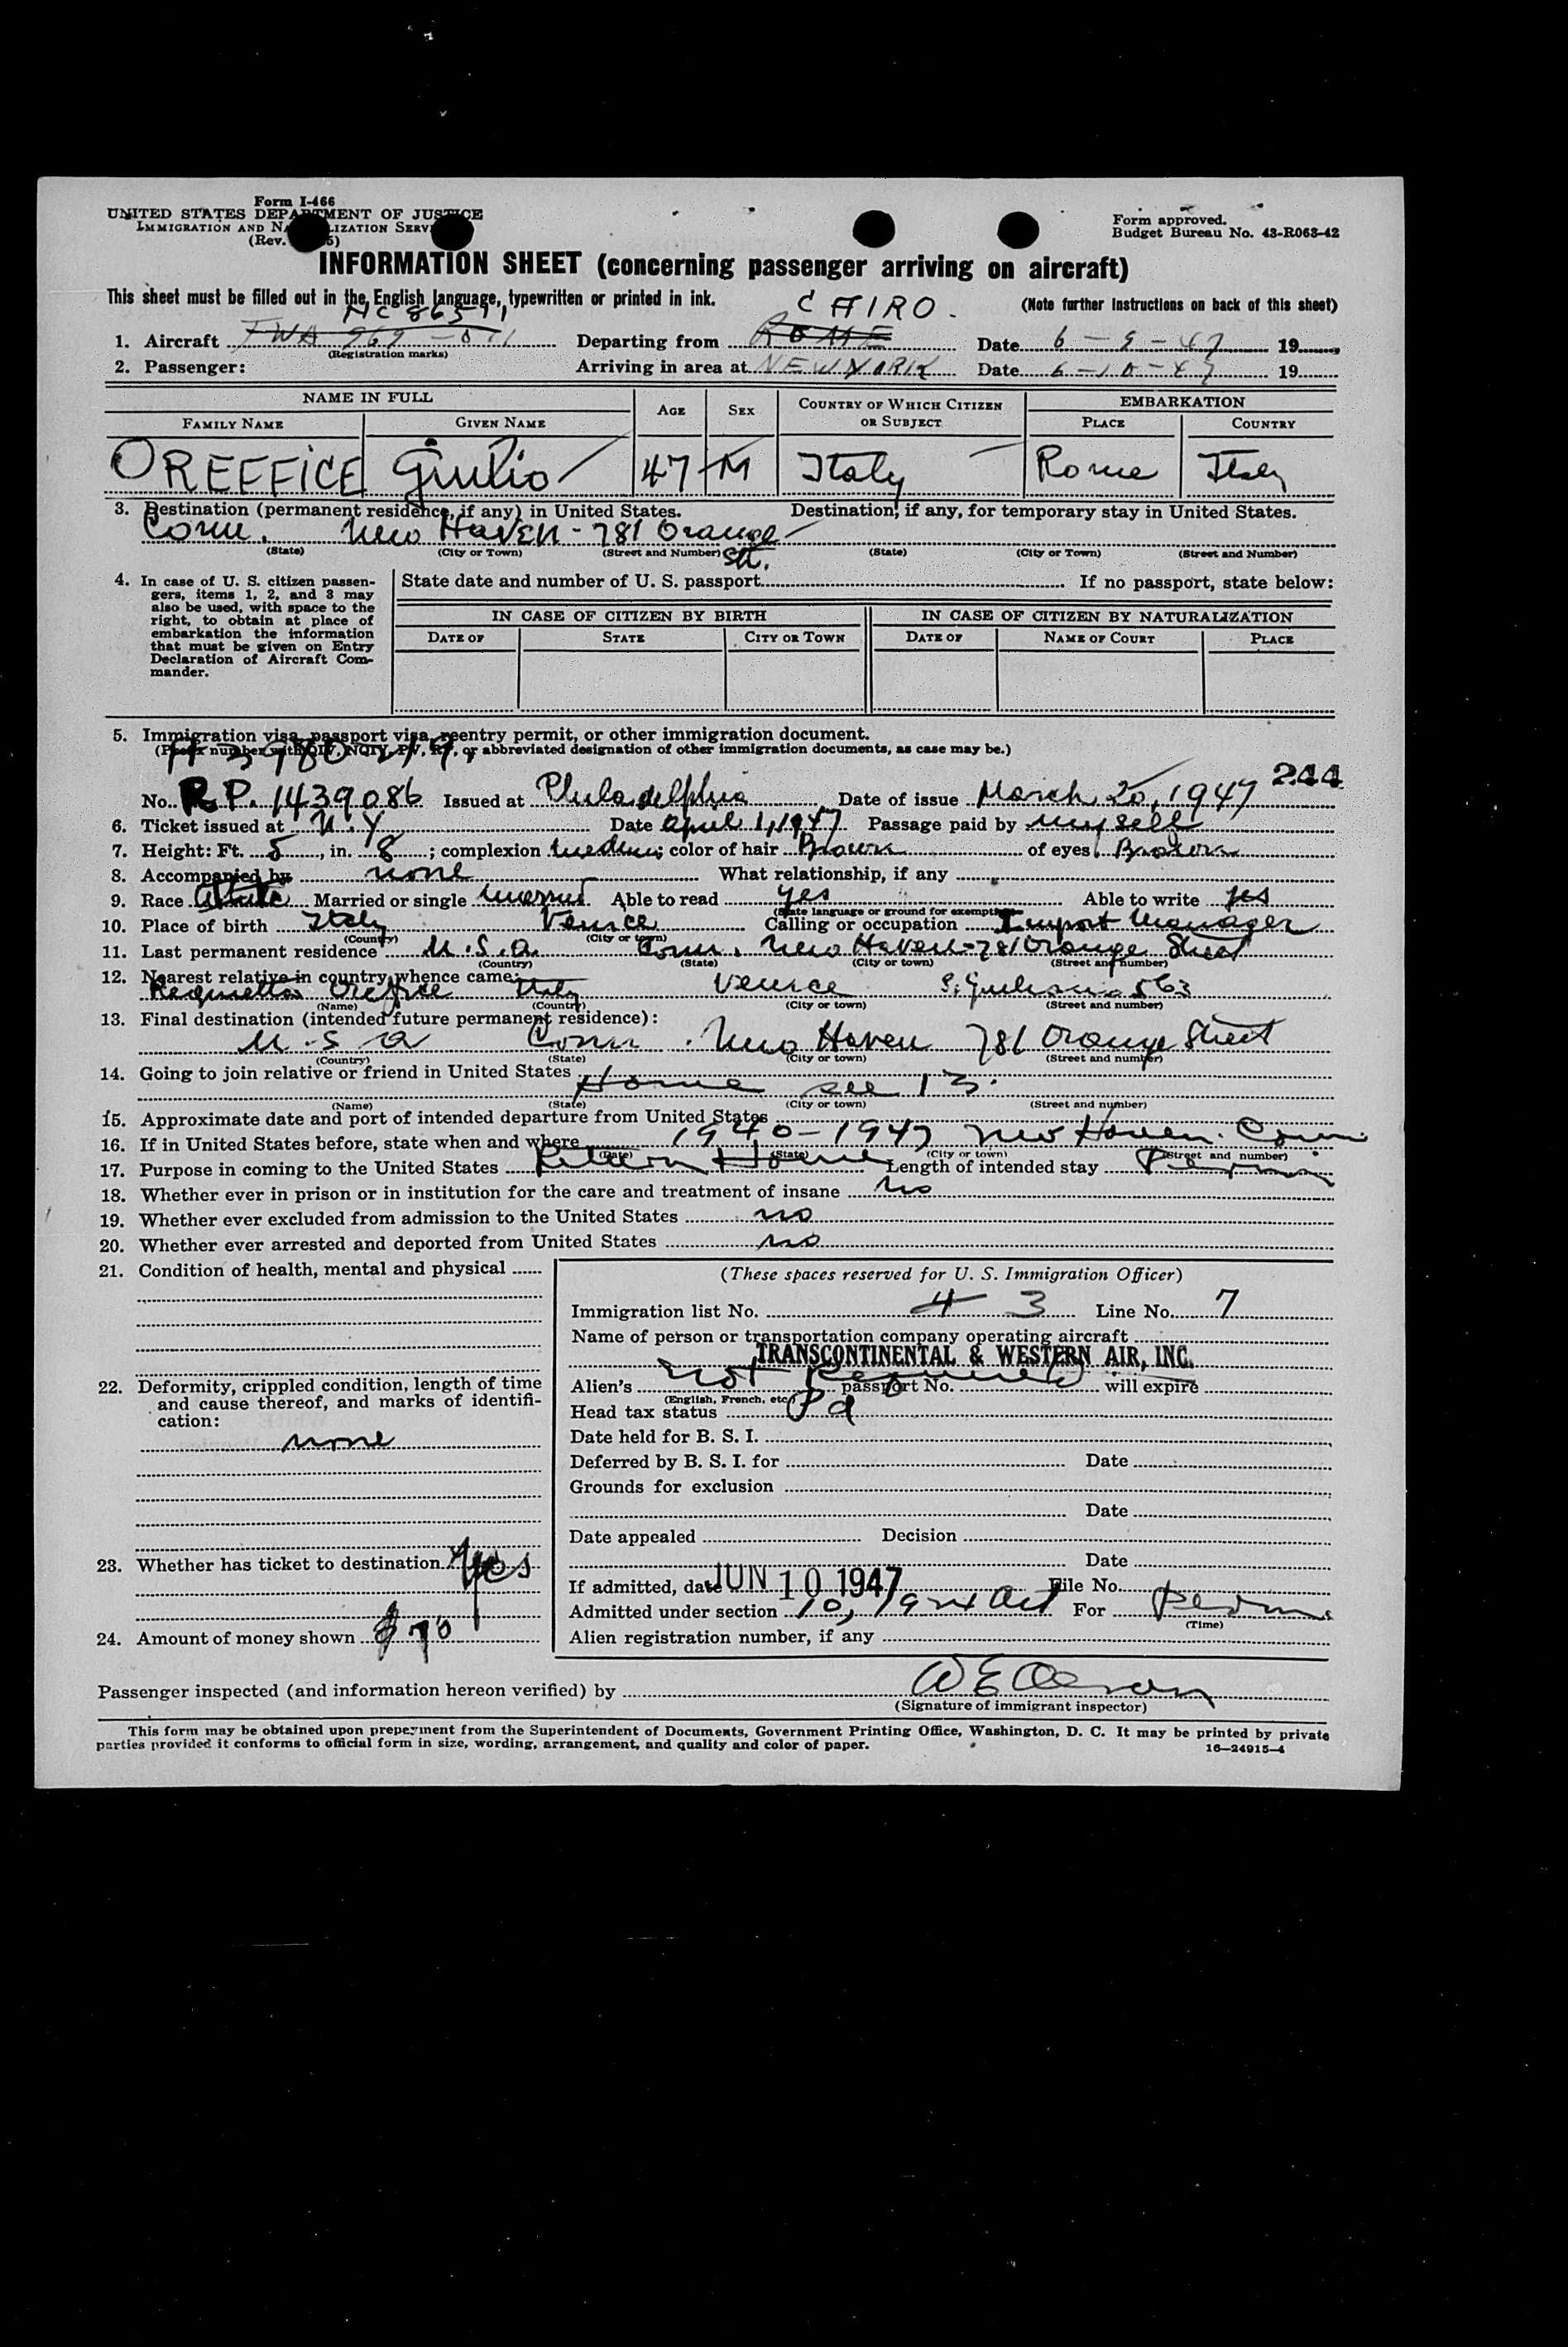 Form I-466
UNITED STATES DEPARTMENT OF JUSTICE
IMMIGRATION AND NATURALIZATION SERVICE
(Rev.
Form approved.
Budget Bureau No. 43-R063-42
INFORMATION SHEET (concerning passenger arriving on aircraft)
This sheet must be filled out in the English language, typewritten or printed in ink.
(Note further instructions on back of this sheet)
NC 86511 CAIRO.
1. Aircraft TWA 969 Departing from ROME Date 6-9-47 19
(Registration marks)
2. Passenger: Arriving in area at NEW YORK Date 6-10-47 19
NAME IN FULL AGE SEX COUNTRY OF WHICH CITIZEN OR SUBJECT EMBARKATION
FAMILY NAME GIVEN NAME PLACE COUNTRY
OREFFICE Giulio 47 M Italy Rome Italy
3. Destination (permanent residence, if any) in United States. Destination, if any, for temporary stay in United States.
Conn. New Haven - 781 Orange St.
(State) (City or Town) (Street and Number) (State) (City or Town) (Street and Number)
4. In case of U. S. citizen passengers, items 1, 2, and 3 may also be used, with space to the right, to obtain at place of embarkation the information that must be given on Entry Declaration of Aircraft Commander.
State date and number of U. S. passport If no passport, state below:
IN CASE OF CITIZEN BY BIRTH IN CASE OF CITIZEN BY NATURALIZATION
DATE OF STATE CITY OR TOWN DATE OF NAME OF COURT PLACE
5. Immigration visa, passport visa, reentry permit, or other immigration document.
(Prefix number with QIV, NQIV, PV, RP, or abbreviated designation of other immigration documents, as case may be.)
244
No. R.P. 1439086 Issued at Philadelphia Date of issue March 20, 1947
6. Ticket issued at N.Y. Date April 1, 1947 Passage paid by myself
7. Height: Ft. 5, in. 8; complexion medium; color of hair Brown of eyes Brown
8. Accompanied by none What relationship, if any
9. Race White Married or single married Able to read yes Able to write yes
(State language or ground for exemption)
10. Place of birth Italy Venice Calling or occupation Import Manager
(Country) (City or town)
11. Last permanent residence U.S.A. Conn. New Haven - 781 Orange Street
(Country) (State) (City or town) (Street and number)
12. Nearest relative in country whence came:
Orefice Italy Venice S. Giuliano 563
(Name) (Country) (City or town) (Street and number)
13. Final destination (intended future permanent residence):
U.S.A Conn. New Haven 781 Orange Street
(Country) (State) (City or town) (Street and number)
14. Going to join relative or friend in United States
Home see 13.
(Name) (State) (City or town) (Street and number)
15. Approximate date and port of intended departure from United States
16. If in United States before, state when and where 1940-1947 New Haven. Conn
(Date) (State) (City or town) (Street and number)
17. Purpose in coming to the United States Return Home Length of intended stay Perm
18. Whether ever in prison or in institution for the care and treatment of insane no
19. Whether ever excluded from admission to the United States no
20. Whether ever arrested and deported from United States no
21. Condition of health, mental and physical
22. Deformity, crippled condition, length of time and cause thereof, and marks of identification:
none
23. Whether has ticket to destination yes
24. Amount of money shown $70
(These spaces reserved for U. S. Immigration Officer)
Immigration list No. 4 3 Line No. 7
Name of person or transportation company operating aircraft
TRANSCONTINENTAL & WESTERN AIR, INC.
not Required
Alien's passport No. will expire
(English, French, etc.)
Head tax status Pd
Date held for B. S. I.
Deferred by B. S. I. for Date
Grounds for exclusion
Date
Date appealed Decision
Date
If admitted, date JUN 10 1947 File No.
Admitted under section 10, 1924 Act For Perm
(Time)
Alien registration number, if any
Passenger inspected (and information hereon verified) by
(Signature of immigrant inspector)
This form may be obtained upon prepayment from the Superintendent of Documents, Government Printing Office, Washington, D. C. It may be printed by private
parties provided it conforms to official form in size, wording, arrangement, and quality and color of paper.
16—24915-4